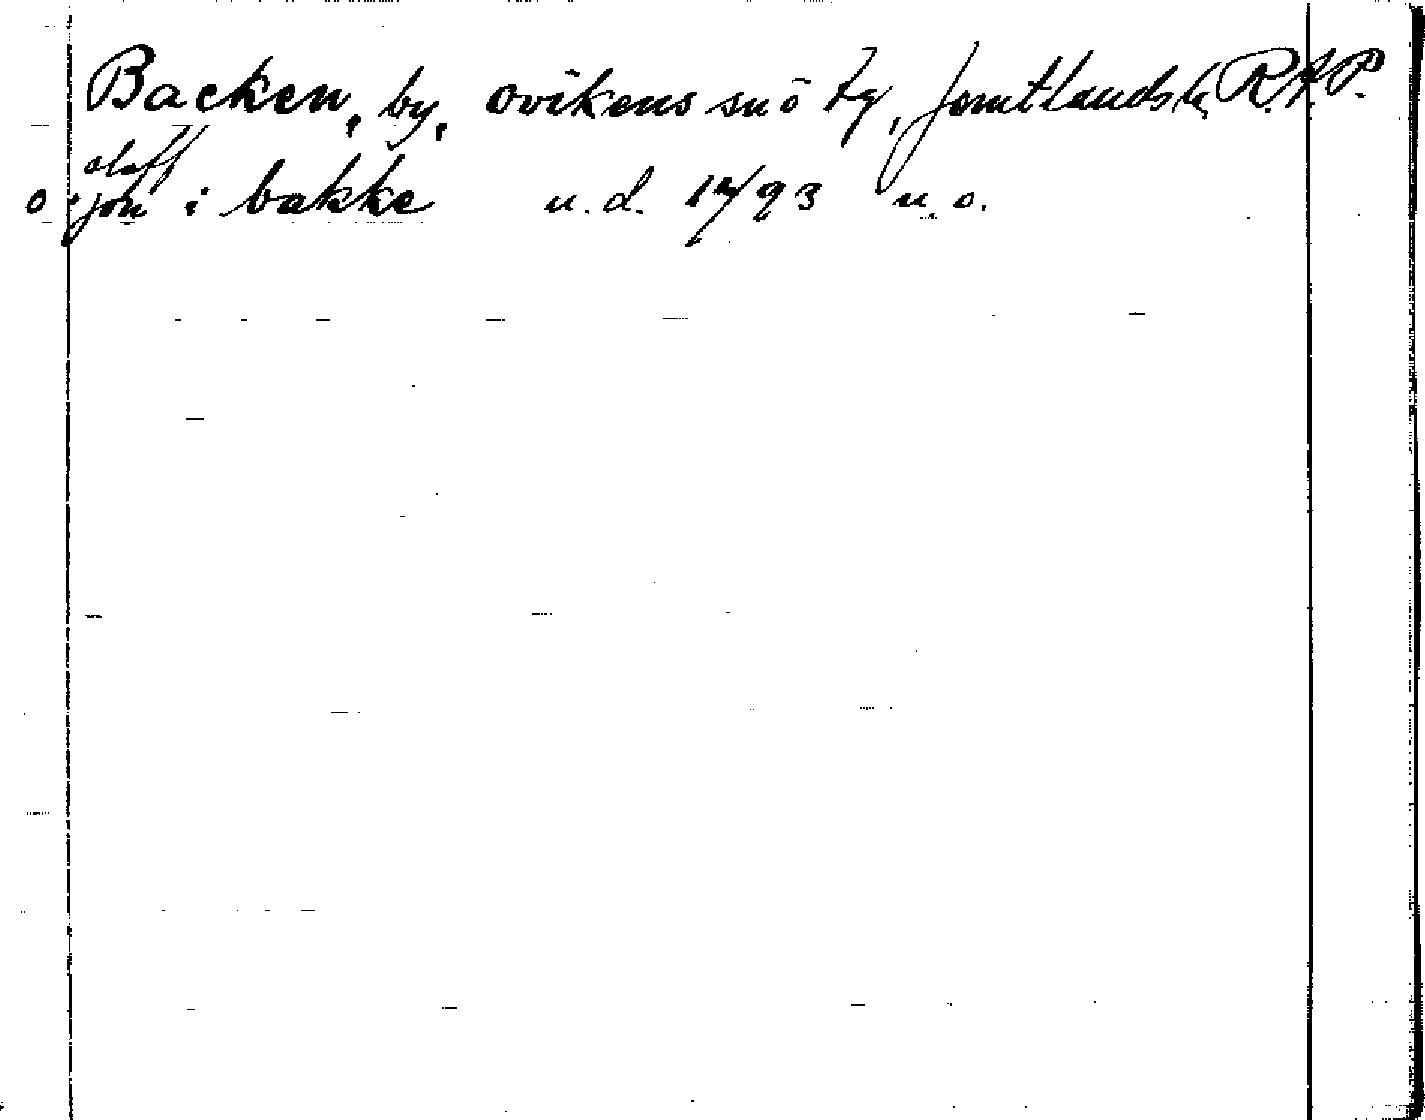 Backen, by, Ovikens sn ö tg, Jämtlands l. R.A.P.
olaff
o. jon i bakke u.d. 12/93 u.o.